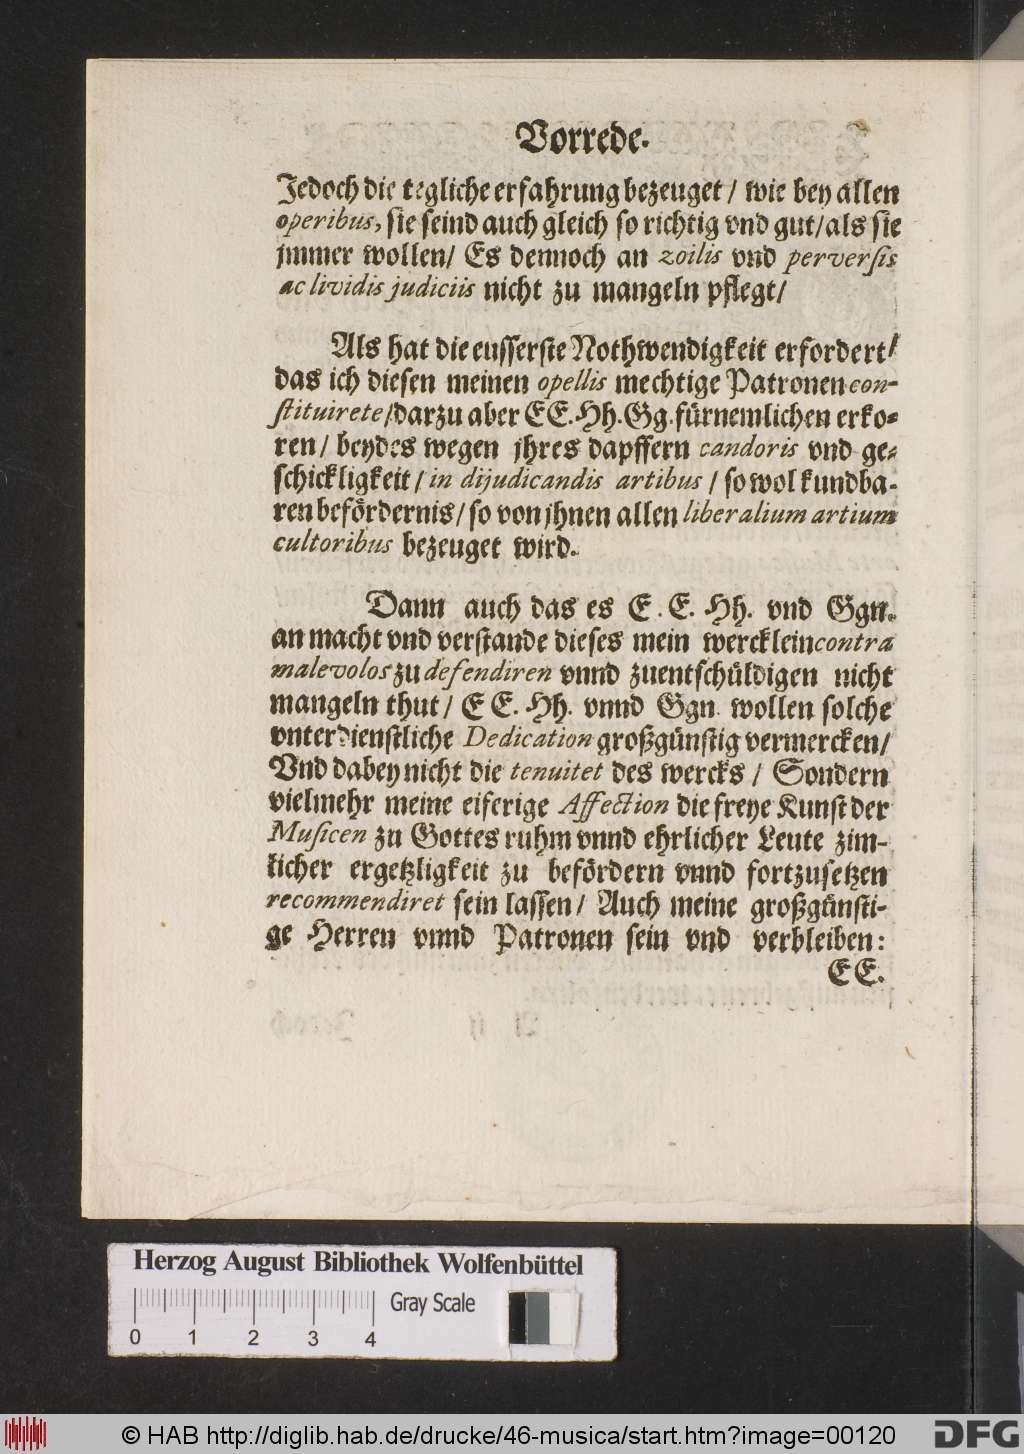 Vorrede.
Jedoch die tegliche erfahrung bezeuget / wie bey allen
operibus, sie seind auch gleich so richtig vnd gut / als sie
jmmer wollen / Es dennoch an zoilis vnd perversis
ac lividis judiciis nicht zu mangeln pflegt /
Als hat die eusserste Nothwendigkeit erfordert /
das ich diesen meinen opellis mechtige Patronen con-
stituirete / darzu aber EE. Hh. Gg. fürnemlichen erko-
ren / beydes wegen jhres dapffern candoris vnd ge-
schickligkeit / in dijudicandis artibus / so wol kundba-
ren befördernis / so von jhnen allen liberalium artium
cultoribus bezeuget wird.
Dann auch das es E. E. Hh. vnd Ggn.
an macht vnd verstande dieses mein wercklein contra
malevolos zu defendiren vnnd zuentschüldigen nicht
mangeln thut / E E. Hh. vnnd Ggn. wollen solche
vnterdienstliche Dedication großgünstig vermercken /
Vnd dabey nicht die tenuitet des wercks / Sondern
vielmehr meine eiferige Affection die freye Kunst der
Musicen zu Gottes ruhm vnnd ehrlicher Leute zim-
licher ergetzligkeit zu befördern vnnd fortzusetzen
recommendiret sein lassen / Auch meine großgünsti-
ge Herren vnnd Patronen sein vnd verbleiben:
EE.
Herzog August Bibliothek Wolfenbüttel
Gray Scale
0 1 2 3 4
© HAB http://diglib.hab.de/drucke/46-musica/start.htm?image=00120
DFG